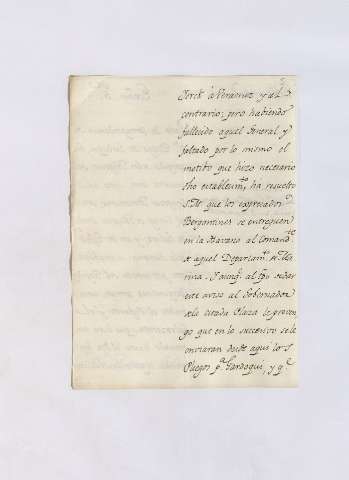 York à Veracruz y al
contrario; pero habiendo
fallecido aquel General y
faltado por lo mismo el
motibo que hizo necesario
dho establecim.to, ha resuelto
S.M. que los expresados
Bergantines se entreguen
en la Havana al Comand.te
de aquel Departam.to de Ma
rina. Y aunq.e al tpo de dar
este aviso al Gobernador
de la citada Plaza le preven
go que en lo sucesivo se le
enviaran desde aqui los
Pliegos p.a Gardoqui, y q.e